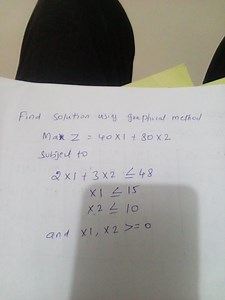 Find solution using graphical method
Max Z = 40x1 + 80x2
Subject to
2x1 + 3x2 ≤ 48
x1 ≤ 15
x2 ≤ 10
and x1, x2 >= 0